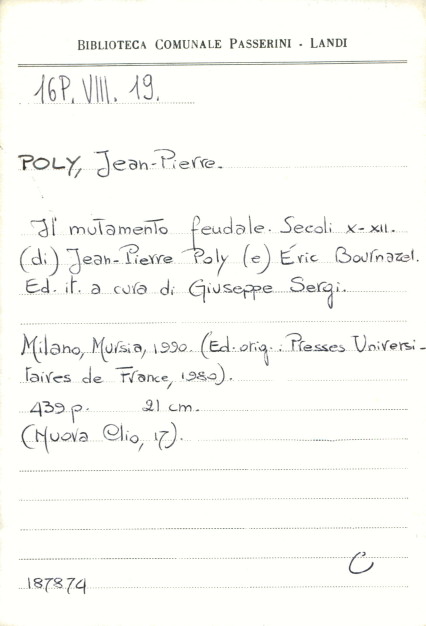 BIBLIOTECA COMUNALE PASSERINI - LANDI
16P. VIII. 19.
POLY, Jean-Pierre.
Il mutamento feudale. Secoli X-XII.
(di) Jean-Pierre Poly (e) Éric Bournazel.
Ed. it. a cura di Giuseppe Sergi.
Milano, Mursia, 1990. (Ed. orig.: Presses Universi-
taires de France, 1980).
439 p. 21 cm.
(Nuova Clio, 17).
C
187874